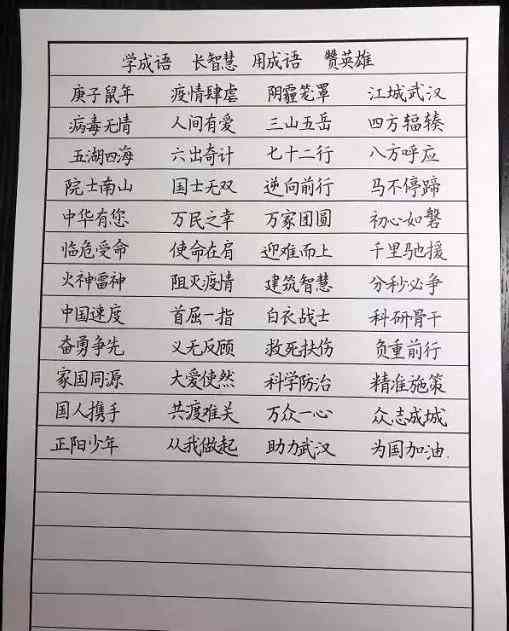 学成语 长智慧 用成语 赞英雄
庚子鼠年 疫情肆虐 阴霾笼罩 江城武汉
病毒无情 人间有爱 三山五岳 四方辐辏
五湖四海 六出奇计 七十二行 八方呼应
院士南山 国士无双 逆向前行 马不停蹄
中华有您 万民之幸 万家团圆 初心如磐
临危受命 使命在肩 迎难而上 千里驰援
火神雷神 阻灭疫情 建筑智慧 分秒必争
中国速度 首屈一指 白衣战士 科研骨干
奋勇争先 义无反顾 救死扶伤 负重前行
家国同源 大爱使然 科学防治 精准施策
国人携手 共度难关 万众一心 众志成城
正阳少年 从我做起 助力武汉 为国加油.